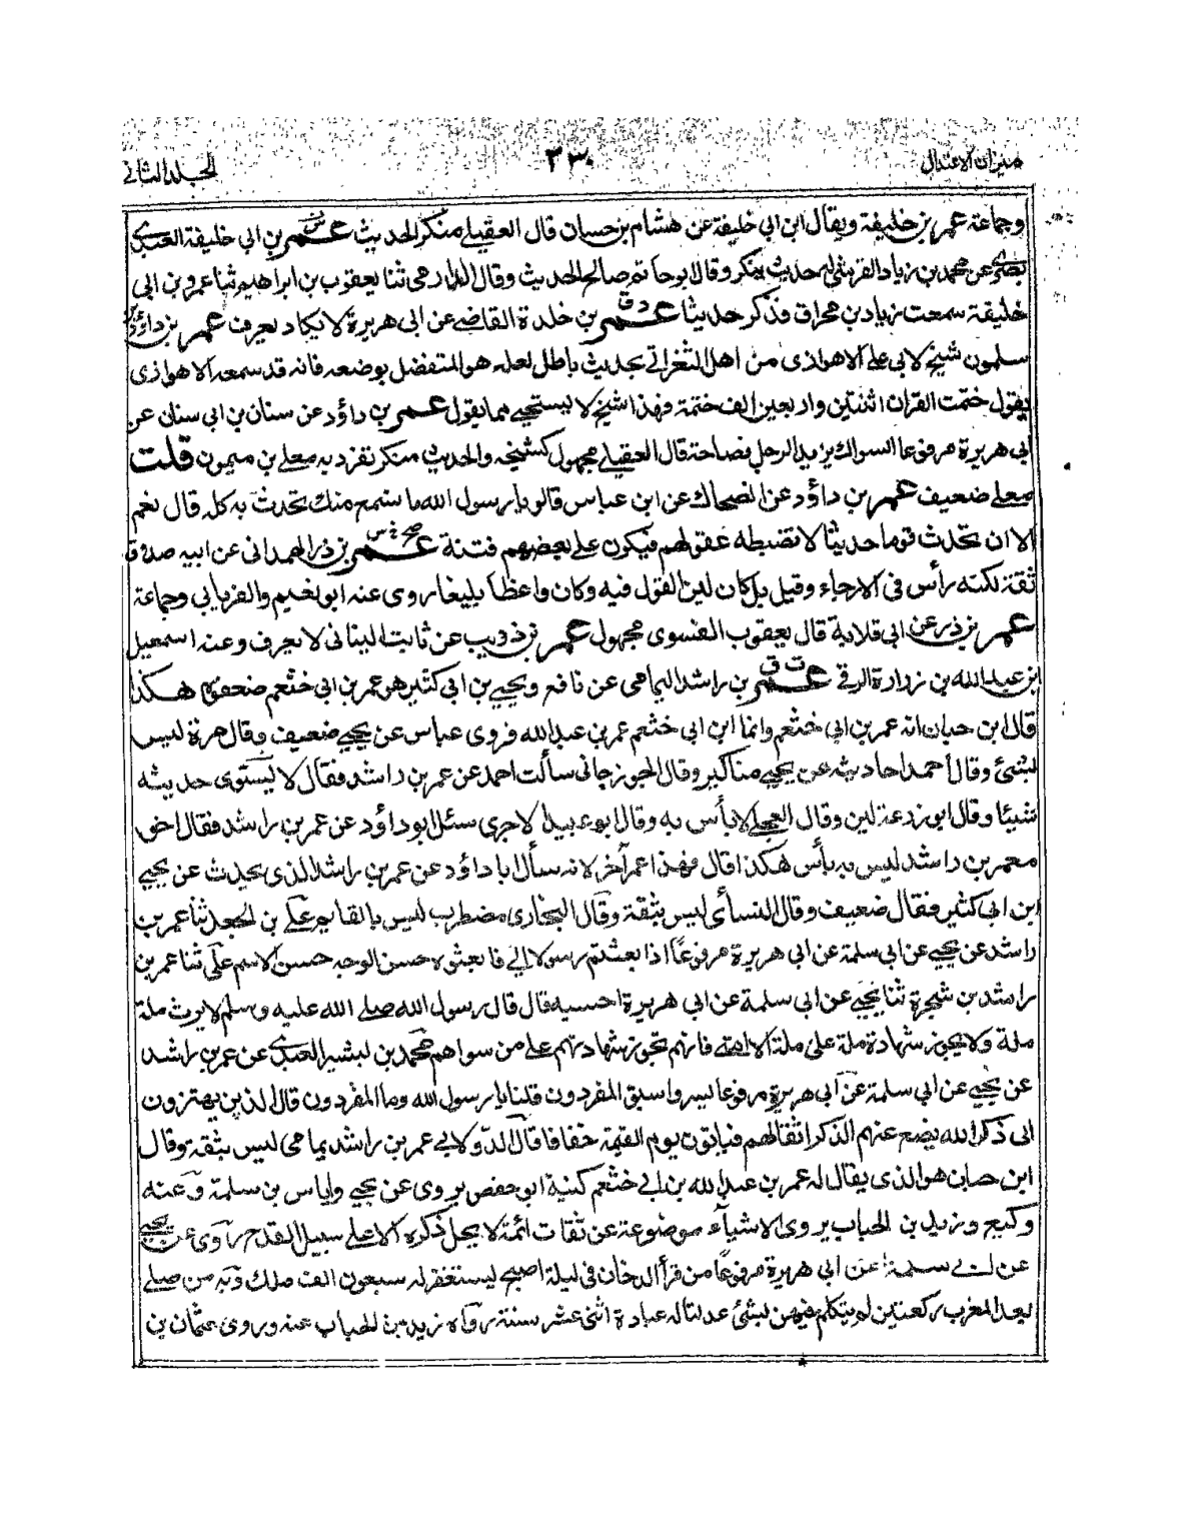 ميزان الاعتدال ٢٣٠ الجلد الثاني
وجماعة عمر بن خليفة ويقال ابن ابي خليفة عن هشام بن حسان قال العقيلي منكر الحديث عمر بن ابي خليفة العبدى
بصرى عن محمد بن زياد القرشي له حديث منكر وقال ابو حاتم صالح الحديث وقال الدارمي ثنا يعقوب بن ابراهيم ثنا عمرو بن ابي
خليفة سمعت زياد بن مخراق فذكر حديثا عمر بن خلدة القاضي عن ابي هريرة لا يكاد يعرف عمر بن داؤد بن
سلمون شيخ لابي علي الاهوازى من اهل الثغر اتى بحديث باطل لعله هو المتفضل بوضعه فانه قد سمعه الاهوازى
يقول ختمت القران اثنتين واربعين الف ختمة فهذا شيخ لا يستحيي مما يقول عمر بن داؤد عن سنان بن ابي سنان عن
ابي هريرة مرفوعا السواك يزيد الرجل فصاحة قال العقيلي مجهول كشيخه والحديث منكر تفرد به معلى بن ميمون قلت
معلى ضعيف عمر بن داؤد عن الضحاك عن ابن عباس قالوا يا رسول الله ما نسمع منك نحدث به كله قال نعم
الا ان تحدث قوما حديثا لا تضبطه عقولهم فيكون على بعضهم فتنة عمر بن ذر الهمدانى عن ابيه صدوق
ثقة لكنه رأس فى الارجاء وقيل بل كان لين القول فيه وكان واعظا بليغا روى عنه ابو نعيم والفريابي وجماعة
عمر بن ذر عن ابي قلابة قال يعقوب الفسوى مجهول عمر بن ذويب عن ثابت البنانى لا يعرف وعنه اسمعيل
بن عبد الله بن زرارة الرقي عمر بن راشد اليمامى عن نافع ويحيى بن ابي كثير هو عمر بن ابي خثعم ضعفوه هكذا
قال ابن حبان انه عمر بن ابي خثعم وانما ابن ابي خثعم عمر بن عبد الله فروى عباس عن يحيى ضعيف وقال مرة ليس
بشئ وقال أحمد احاديثه عن يحيى مناكير وقال الجوزجانى سألت احمد عن عمر بن راشد فقال لا يستوى حديثه
شيئا وقال ابو زرعة لين وقال العجلي لا بأس به وقال ابو عبيد الآجرى سئل ابو داؤد عن عمر بن راشد فقال اخو
معمر بن راشد ليس به بأس هكذا قال فهذا عمر آخر لانه سأل ابا داؤد عن عمر بن راشد الذى يحدث عن يحيى
ابن ابي كثير فقال ضعيف وقال النسائي ليس بثقة وقال البخارى مضطرب ليس بالقايم علي بن الجعد ثنا عمر بن
راشد عن يحيى عن ابي سلمة عن ابي هريرة مرفوعا اذا بعثتم رسولا الي فابعثوه حسن الوجه حسن الاسم علي ثنا عمر بن
راشد بن شجرة ثنا يحيى عن ابي سلمة عن ابي هريرة احسبه قال قال رسول الله صلى الله عليه وسلم لا يرث ملة
ملة ولا يجوز شهادة ملة على ملة الا امتي فانهم تجوز شهادتهم على من سواهم محمد بن بشير العبدى عن عمر بن راشد
عن يحيى عن ابي سلمة عن ابي هريرة مرفوعا سيروا سبق المفردون قلنا يا رسول الله وما المفردون قال الذين يهترون
فى ذكر الله يضع عنهم الذكر اثقالهم فياتون يوم القيمة خفافا قال الدولابي عمر بن راشد يمامى ليس بثقة وقال
ابن حبان هو الذى يقال له عمر بن عبد الله بن ابي خثعم كنيته ابو حفص يروى عن يحيى واياس بن سلمة وعنه
وكيع وزيد بن الحباب يروى الاشياء موضوعة عن ثقات ائمة لا يحل ذكره الا على سبيل القدح روى عن يحيى
عن ابي سلمة عن ابي هريرة مرفوعا من قرأ الدخان فى ليلة اصبح يستغفر له سبعون الف ملك وبه من صلى
بعد المغرب ركعتين لم يتكلم فيهن بشئ عدلتا له عبادة اثنى عشر سنة رواه زيد بن الحباب عنه وروى عثمان بن